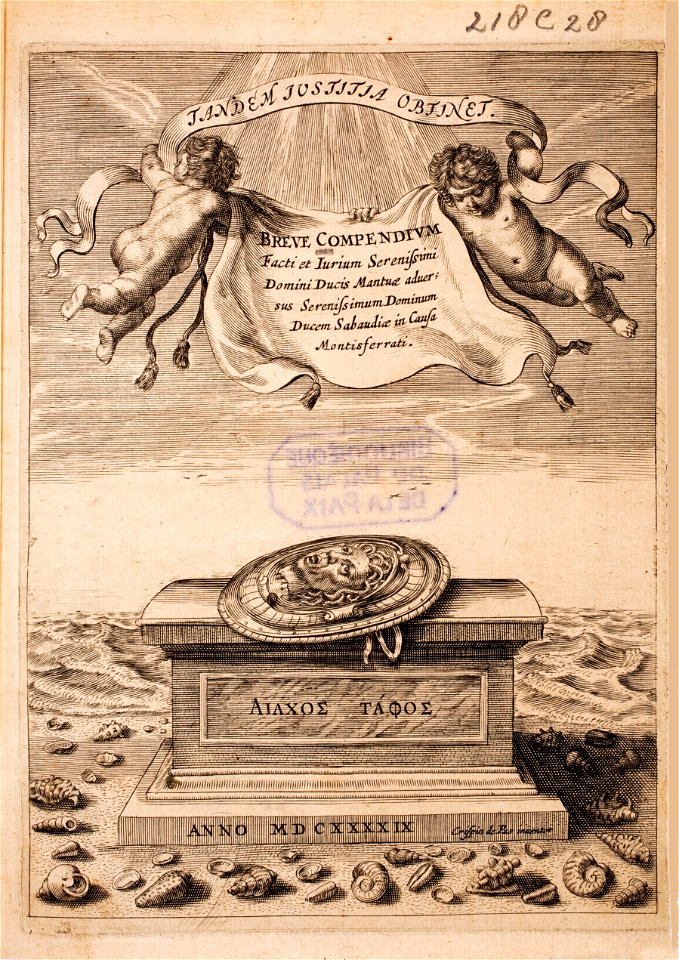 218 C 28
TANDEM IUSTITIA OBTINET.
BREVE COMPENDIVM
Facti et Iurium Serenissimi
Domini Ducis Mantuæ aduer:
sus Serenissimum Dominum
Ducem Sabaudiæ in Causa
Montisferrati.
BIBLIOTHÈQUE
DU PALAIS
DE LA PAIX
ΑΙΑΧΟΣ ΤΆΦΟΣ
ANNO MDCXXXXIX
Crispin de Pas inventor